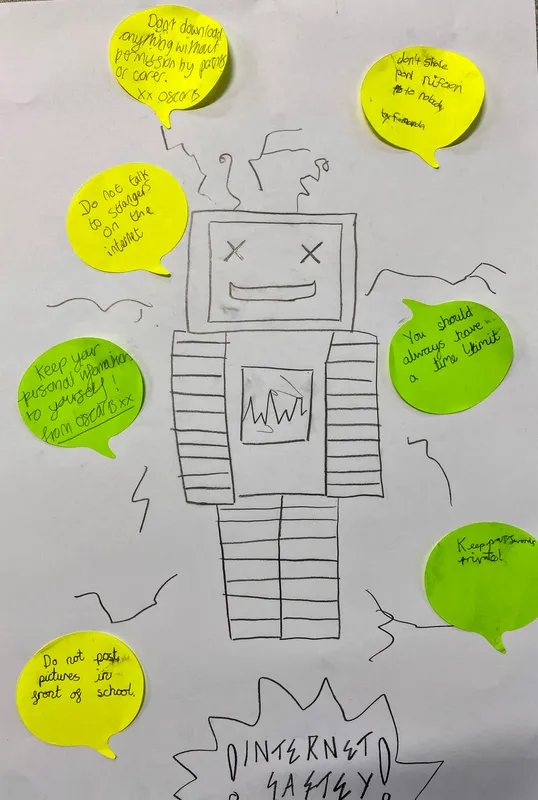 Don't download
anything without
permission by parents
or carer.
xx OSCAR B
don't share
to nobody
Do not talk
to strangers
on the
internet
You should
always have
a time limit
Keep your
personal information
to yourself!
from OSCAR B xx
Keep passwords
private!
Do not post
pictures in
front of school.
INTERNET
SAFTEY